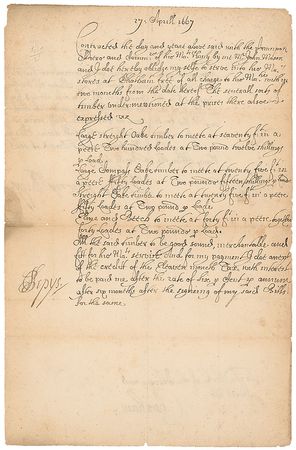 27. Aprill. 1667
Contracted the day and yeare above said with the principall
Officers and Comm.rs of his Ma.ts Navy by me John Wilson
and I do hereby oblige my selfe to serve into his Ma.ts
stores at Chatham free of all charge to his Ma.tie with in
two months from the date hereof the severall sorts of
timber undermentioned at the prices there alsoe
expressed viz
Large streight Oake timber to meete at seaventy fit in a
peece Two hundred loads at two pound twelve shillings
p load.
Large Compass Oake timber to meete at twenty five ft in
a peece fifty loades at Two pounds fifteen shillings p load
streight Oake timber to meete at twenty five ft in a peece
fifty loades at Two pound p load.
Elme and Beech to meete at forty ft in a peece together
forty loades at Two pounds p load.
All the said timber to be good sound, merchantable, and
fit for his Ma.ts service And for my payment I doe accept
of the creditt of the Eleaven months Tax, with interest
to be paid me after the rate of six p Cent p annum
after six months after the signeing of my said Bills
for the same.
SPepys